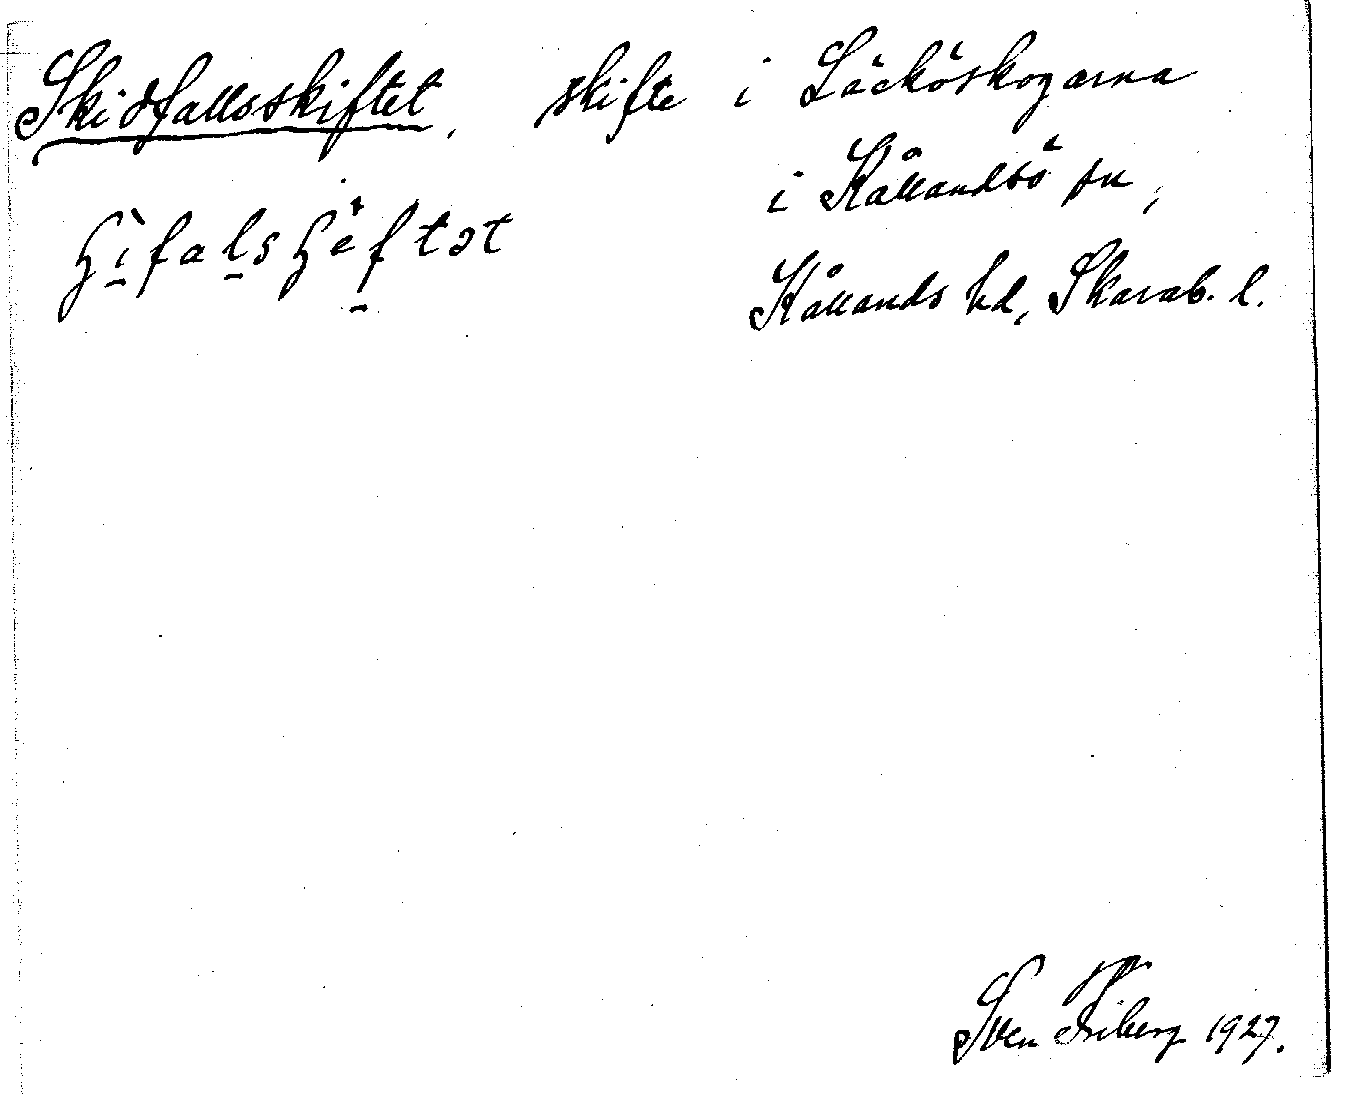 Skidfallsskiftet, skifte i Läcköskogarna
i Kållandsö sn,
Kållands hd, Skarab. l.
Sven Friberg 1927.